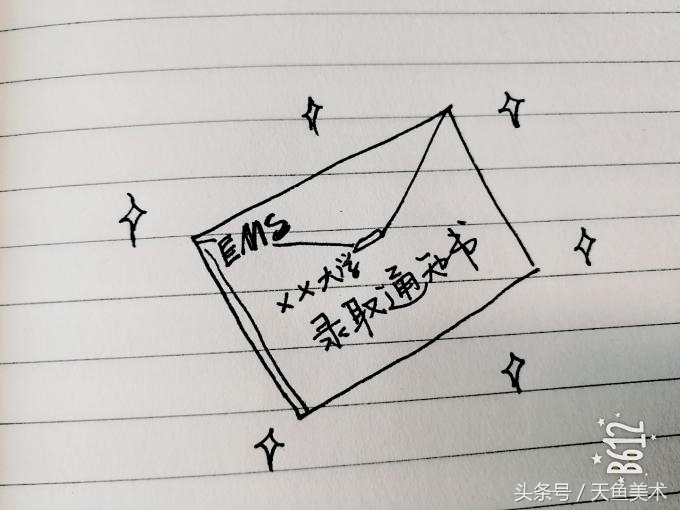 EMS
××大学
录取通知书
B612
头条号 / 天鱼美术